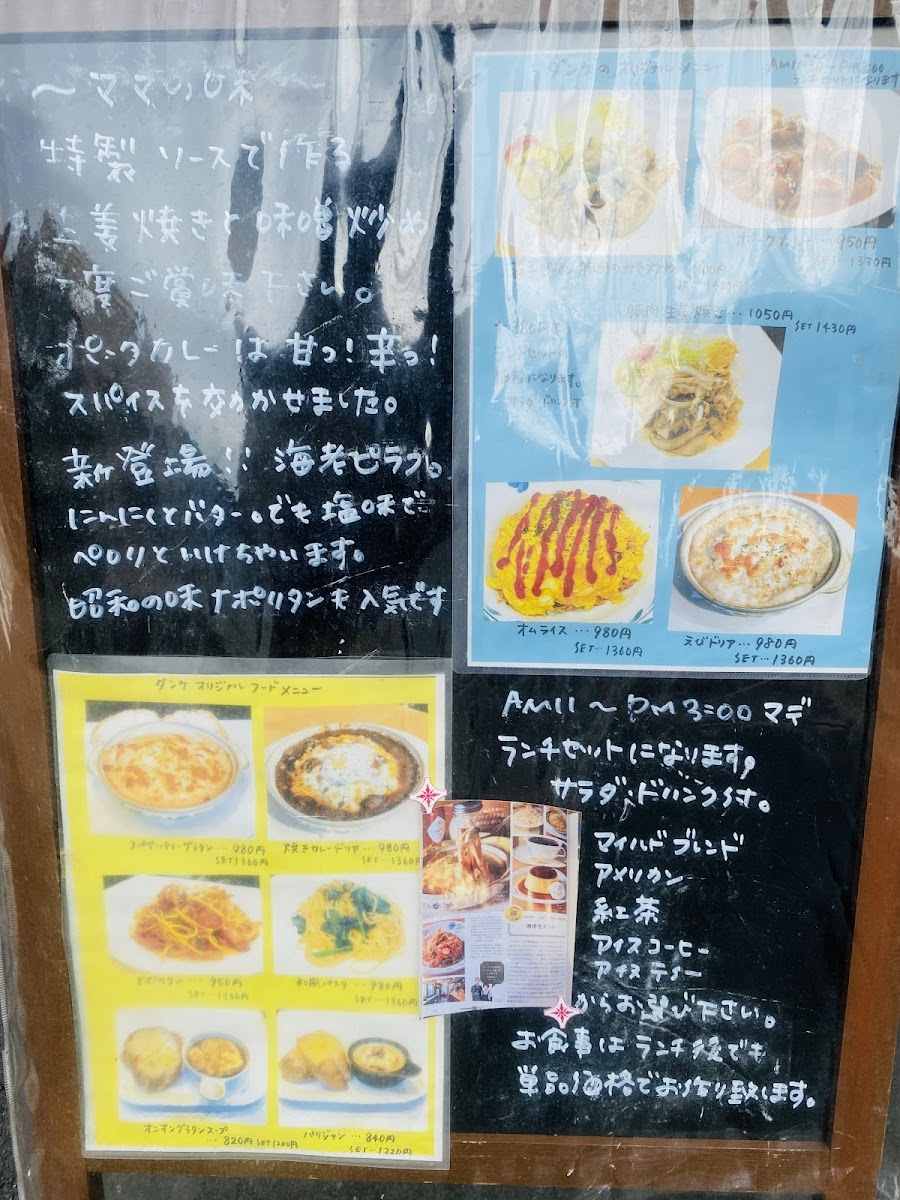 〜ママの味〜
特製 ソースで作る
生姜焼きと味噌炒め
一度ご賞味下さい。
ポークカレーは甘っ!辛っ!
スパイスを効かせました。
新登場!! 海老ピラフ。
にんにくとバター。でも塩味で
ペロリといけちゃいます。
昭和の味ナポリタンも人気です
ダンケの オリジナル メニュー
AM11 〜 PM3:00
ランチセットになります
ポークカレー…950円
SET…1330円
豚肉生姜焼き…1050円
SET 1430円
ランチセットの
オムライス…980円
SET…1360円
えびドリア…980円
SET…1360円
ダンケ オリジナル フードメニュー
スパゲッティーグラタン…980円
SET 1360円
焼きカレードリア…980円
SET…1360円
ナポリタン…950円
SET…1330円
和風パスタ…980円
SET…1360円
オニオングラタンスープ
…820円 SET 1200円
パリジャン…840円
SET…1220円
AM11 〜 PM3:00 マデ
ランチセットになります。
サラダ・ドリンク付。
マイルド ブレンド
アメリカン
紅茶
アイスコーヒー
アイスティー
からお選び下さい。
お食事は ランチ後でも
単品価格でお作り致します。